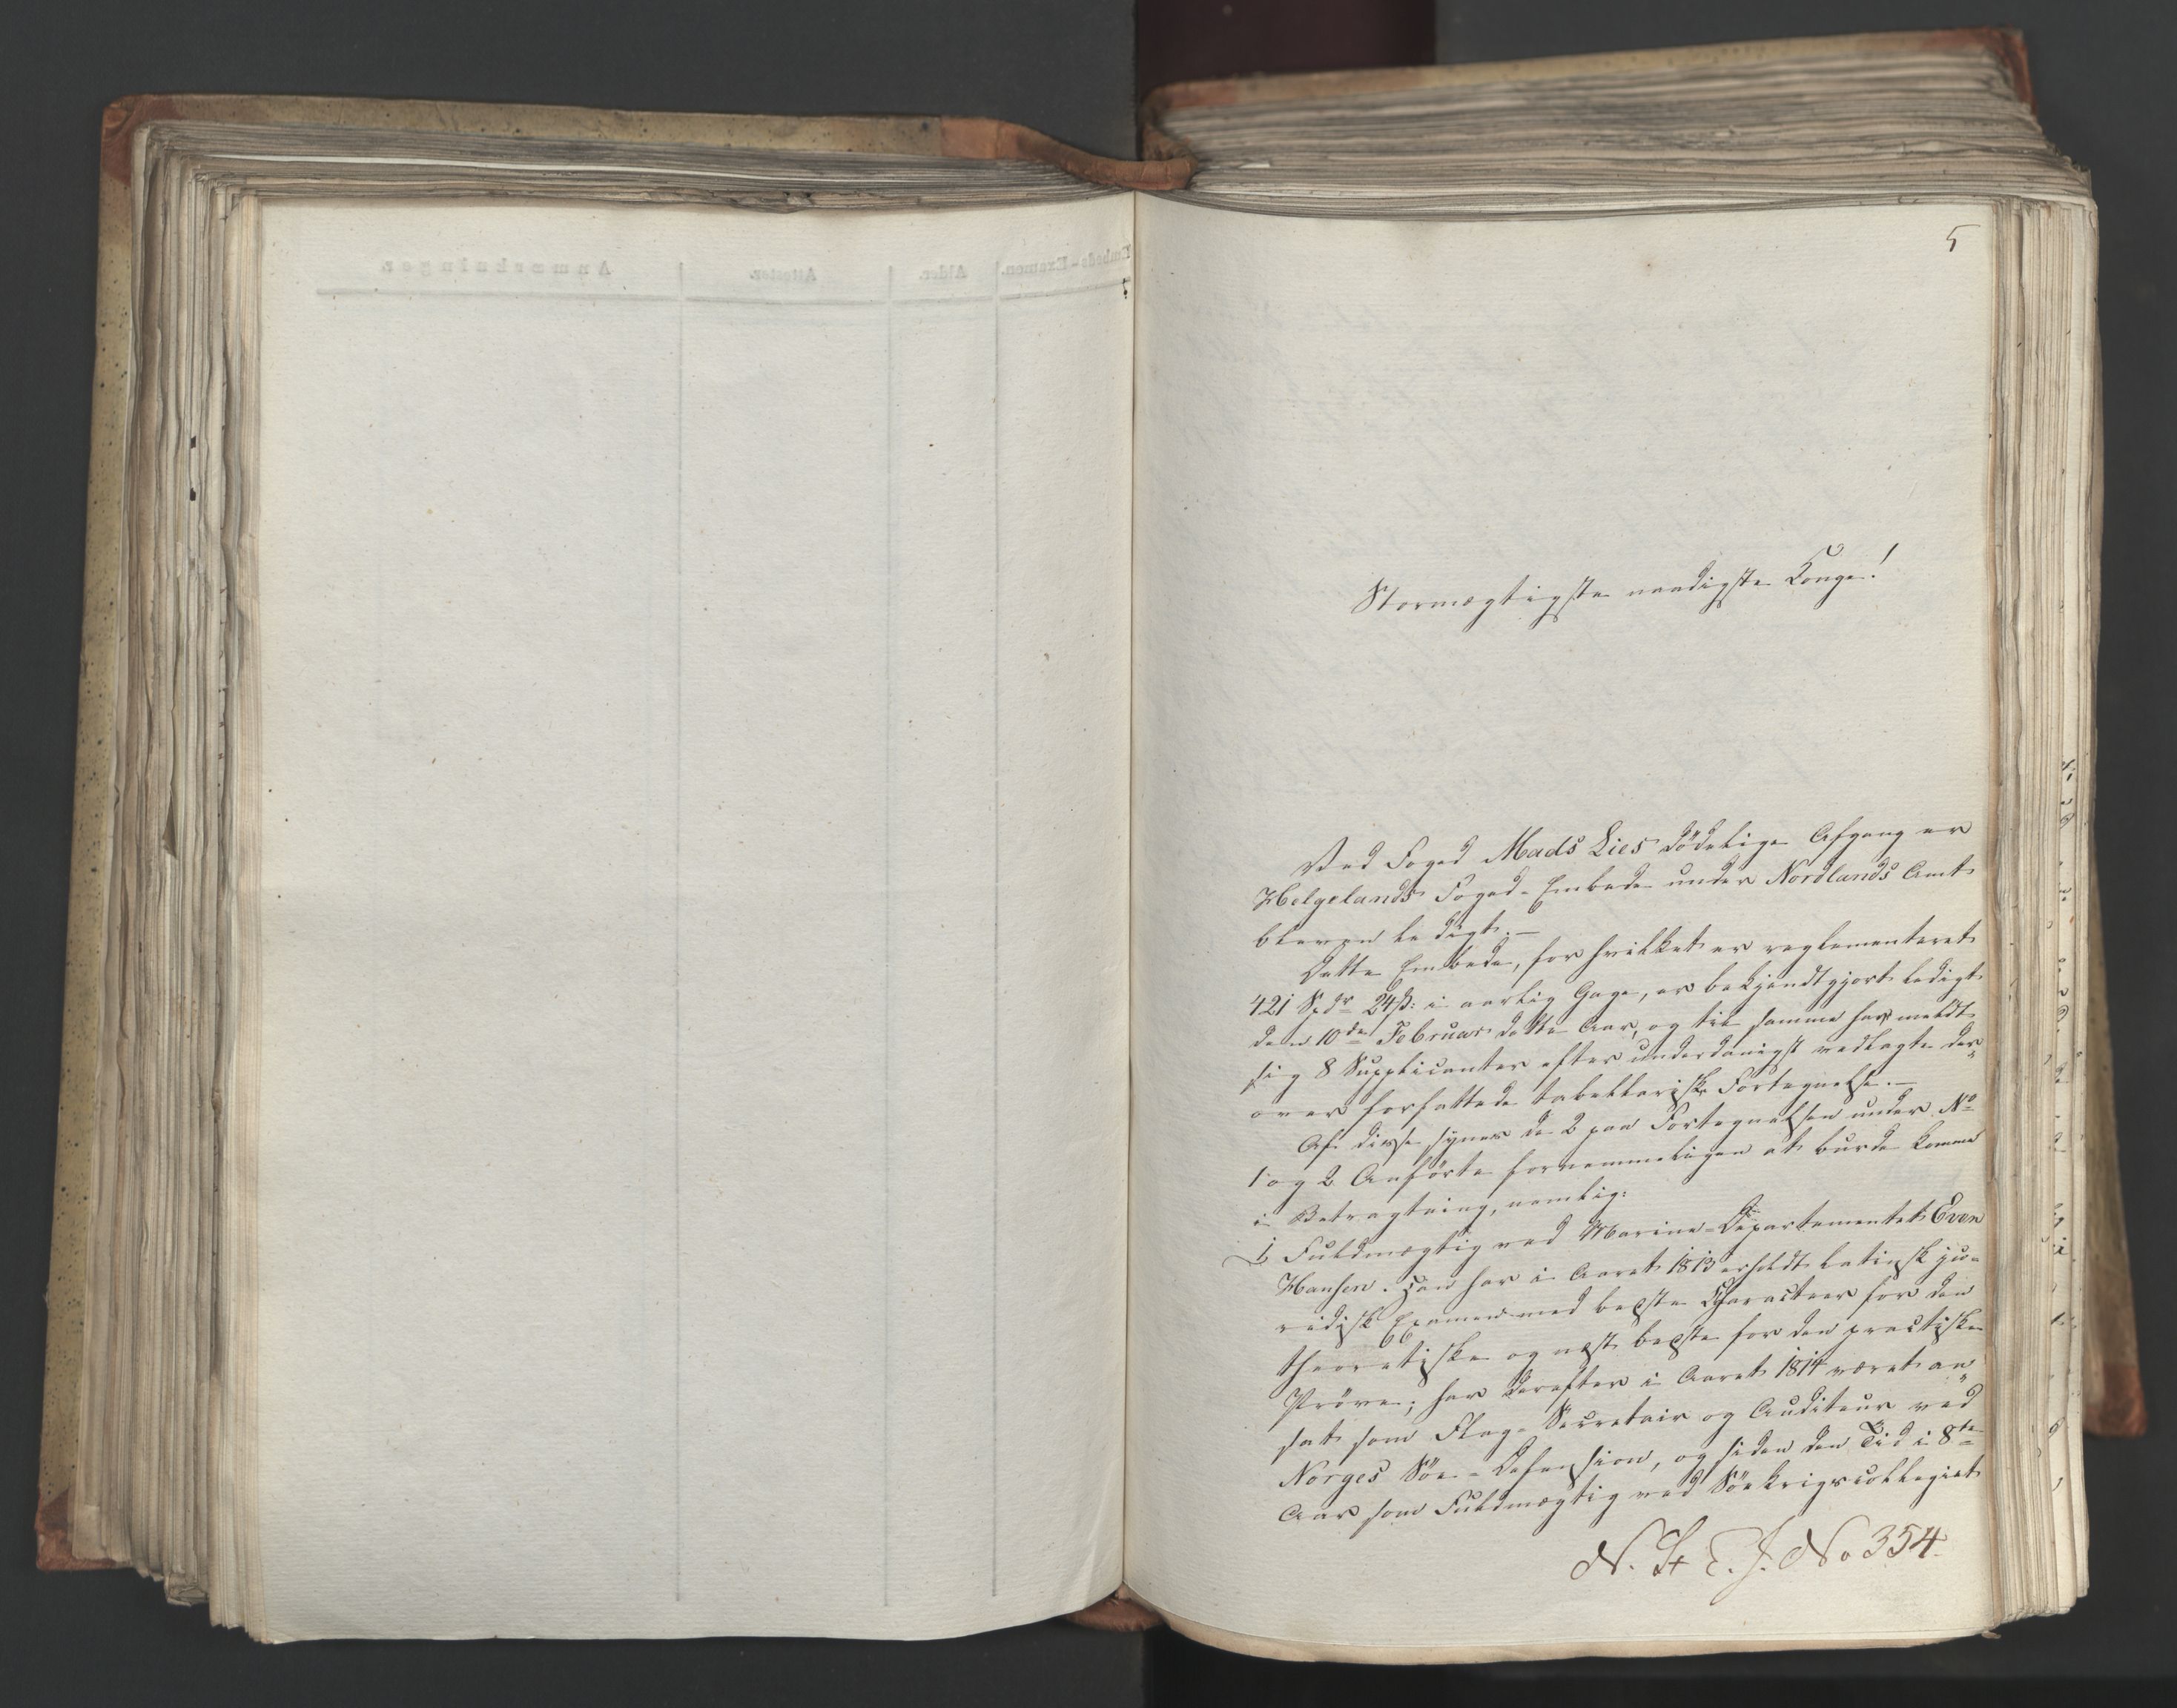 5
Stormægtigste naadigste Konge!
Ved Foged Mads Lies dödelige Afgang er
Helgelands Foged-Embede under Nordlands Amt
bleven ledigt.—
Dette Embede, for hvilket er reglementeret
421 Spdr 24ß: i aarlig Gage, er bekjendtgjort ledigt
den 10de Februar dette Aar, og til samme har meldt
sig 8 Supplicanter efter underdanigst vedlagte der„
over forfattede tabellariske Fortegnelse.—
Af disse synes de 2 paa Fortegnelsen under No
1 og 2 Anförte fornemmeligen at burde komme
i Betragtning, nemlig:
1, Fuldmægtig ved Marine-Departementet Even
Hansen. Han har i Aaret 1813 erholdt latinsk ju-
ridisk Examen med beqste Characteer for den
theoretiske og næst beqste for den practiske
Pröve; har derefter i Aaret 1814 været an„
sat som Flag-Secretair og Auditeur ved
Norges Söe-Defension, og siden den Tid i 8te
Aar som Fuldmægtig ved Söekrigscollegiet
N. St. E. J. No 354.
Anmærkninger.
Attester.
Alder.
Embeds-Examen.